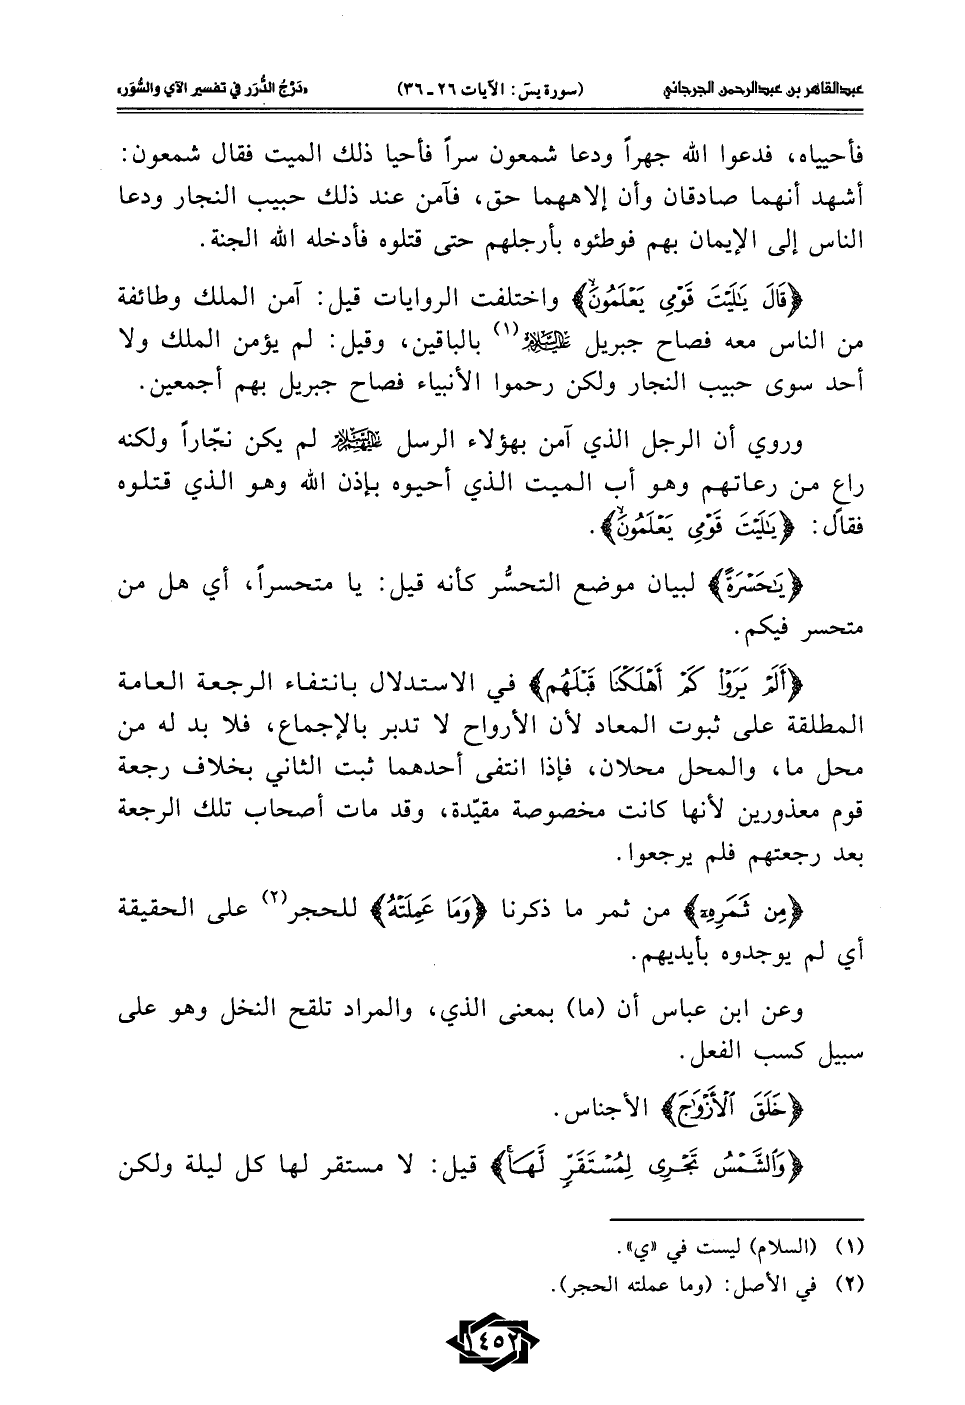 عبدالقاهر بن عبدالرحمن الجرجاني (سورة يس: الآيات ٢٦ ـ ٣٦) «دَرْجُ الدُّرَر في تفسير الآي والسُّوَر»
فأحيياه، فدعوا الله جهراً ودعا شمعون سراً فأحيا ذلك الميت فقال شمعون:
أشهد أنهما صادقان وأن إلاههما حق، فآمن عند ذلك حبيب النجار ودعا
الناس إلى الإيمان بهم فوطئوه بأرجلهم حتى قتلوه فأدخله الله الجنة.
﴿قَالَ يَٰلَيْتَ قَوْمِى يَعْلَمُونَ﴾ واختلفت الروايات قيل: آمن الملك وطائفة
من الناس معه فصاح جبريل عليه السلام(١) بالباقين، وقيل: لم يؤمن الملك ولا
أحد سوى حبيب النجار ولكن رحموا الأنبياء فصاح جبريل بهم أجمعين.
وروي أن الرجل الذي آمن بهؤلاء الرسل عليهم السلام لم يكن نجّاراً ولكنه
راعٍ من رعاتهم وهو أب الميت الذي أحيوه بإذن الله وهو الذي قتلوه
فقال: ﴿يَٰلَيْتَ قَوْمِى يَعْلَمُونَ﴾.
﴿يَٰحَسْرَةً﴾ لبيان موضع التحسُّر كأنه قيل: يا متحسراً، أي هل من
متحسر فيكم.
﴿أَلَمْ يَرَوْا۟ كَمْ أَهْلَكْنَا قَبْلَهُم﴾ في الاستدلال بانتفاء الرجعة العامة
المطلقة على ثبوت المعاد لأن الأرواح لا تدبر بالإجماع، فلا بد له من
محل ما، والمحل محلان، فإذا انتفى أحدهما ثبت الثاني بخلاف رجعة
قوم معذورين لأنها كانت مخصوصة مقيّدة، وقد مات أصحاب تلك الرجعة
بعد رجعتهم فلم يرجعوا.
﴿مِن ثَمَرِهِۦ﴾ من ثمر ما ذكرنا ﴿وَمَا عَمِلَتْهُ﴾ للحجر(٢) على الحقيقة
أي لم يوجدوه بأيديهم.
وعن ابن عباس أن (ما) بمعنى الذي، والمراد تلقح النخل وهو على
سبيل كسب الفعل.
﴿خَلَقَ ٱلْأَزْوَٰجَ﴾ الأجناس.
﴿وَٱلشَّمْسُ تَجْرِى لِمُسْتَقَرٍّ لَّهَا﴾ قيل: لا مستقر لها كل ليلة ولكن
(١) (السلام) ليست في «ي».
(٢) في الأصل: (وما عملته الحجر).
١٤٥٢